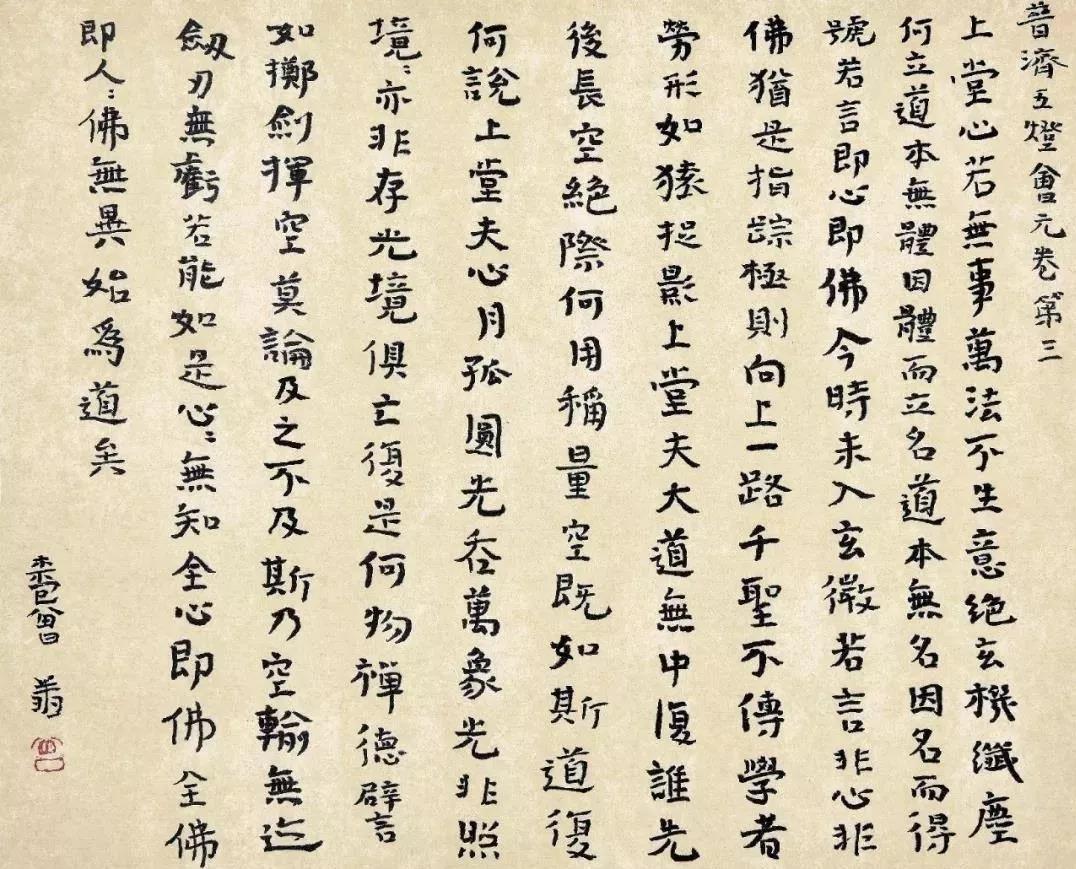 普濟五燈會元卷第三
上堂心若無事萬法不生意絕玄機纖塵
何立道本無體因體而立名道本無名因名而得
號若言即心即佛今時未入玄微若言非心非
佛猶是指蹤極則向上一路千聖不傳學者
勞形如猿捉影上堂夫大道無中復誰先
後長空絕際何用稱量空既如斯道復
何說上堂夫心月孤圓光吞萬象光非照
境〻亦非存光境俱亡復是何物禪德譬
如擲劍揮空莫論及之不及斯乃空輪無迹
劔刃無虧若能如是心〻無知全心即佛全佛
即人〻佛無異始為道矣
曾翁